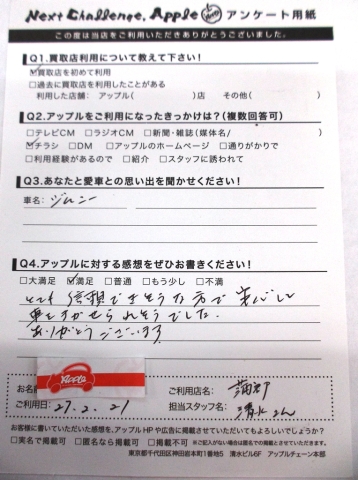 Next Challenge, Apple アンケート用紙
この度は当店をご利用いただきありがとうございました。
Q1.買取店利用について教えて下さい!
☑買取店を初めて利用
□過去に買取店を利用したことがある
利用した店舗: アップル( )店 その他( )
Q2.アップルをご利用になったきっかけは?(複数回答可)
□テレビCM □ラジオCM □新聞・雑誌(媒体名/ )
☑チラシ □DM □アップルのホームページ □通りがかりで
□利用経験があるので □紹介 □スタッフに誘われて
Q3.あなたと愛車との思い出を聞かせください!
車名: ジムニー
Q4.アップルに対する感想をぜひお書きください!
□大満足 ☑満足 □普通 □もう少し □不満
とても信頼できそうな方で安心して
車をまかせられそうでした。
ありがとうございます
Apple
お名前
ご利用店名: 蒲郡
ご利用日: 27.2.21
担当スタッフ名: 清水さん
お客様に書いていただいた感想を、アップルHPや広告に掲載させていただいてもよろしいでしょうか?
□実名で掲載可 □匿名なら掲載可 □掲載不可 ※ご記入がない場合は匿名での掲載とさせていただきます。
東京都千代田区神田岩本町1番地5 清水ビル6F アップルチェーン本部